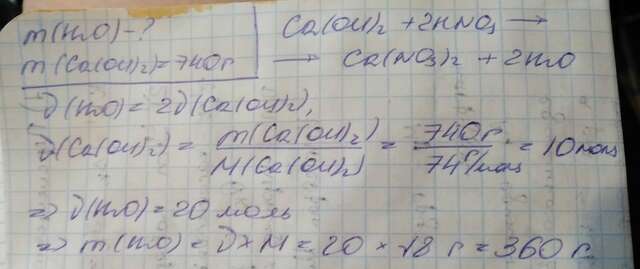 m(H₂O) - ?
m(Ca(OH)₂) = 740г
Ca(OH)₂ + 2HNO₃ →
→ Ca(NO₃)₂ + 2H₂O
ν(H₂O) = 2ν(Ca(OH)₂),
ν(Ca(OH)₂) = m(Ca(OH)₂) / M(Ca(OH)₂) = 740г / 74г/моль = 10моль
=> ν(H₂O) = 20 моль
=> m(H₂O) = ν × M = 20 × 18 г = 360 г